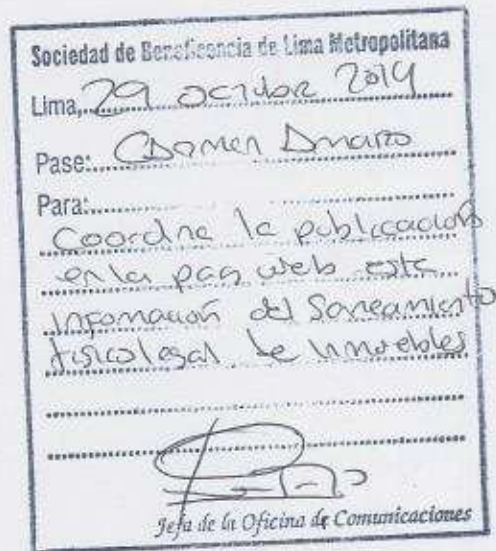 Sociedad de Beneficencia de Lima Metropolitana
Lima, 29 octubre 2019
Pase: Carmen Amaro
Para:
Coordine la publicación
en la pag web esta
Información del Saneamiento
físicolegal de Inmuebles
Jefa de la Oficina de Comunicaciones